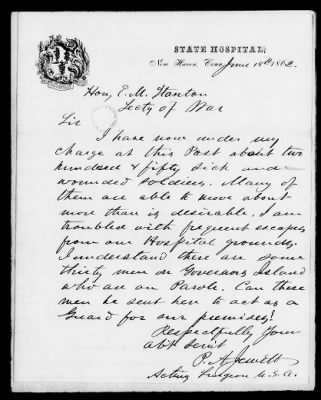 STATE HOSPITAL,
New Haven, Conn June 18th 1862
Hon, E. M. Stanton
Secty of War
Sir
I have now under my
charge at this Post about two
hundred & fifty sick and
wounded soldiers. Many of
them are able to move about
more than is desirable. I am
troubled with frequent escapes
from our Hospital grounds.
I understand there are some
thirty men on Governors Island
who are on Parole. Can these
men be sent here to act as a
Guard for our premises?
Respectfully Your
obt servt
P. A. Jewett
Acting Surgeon U.S.A.